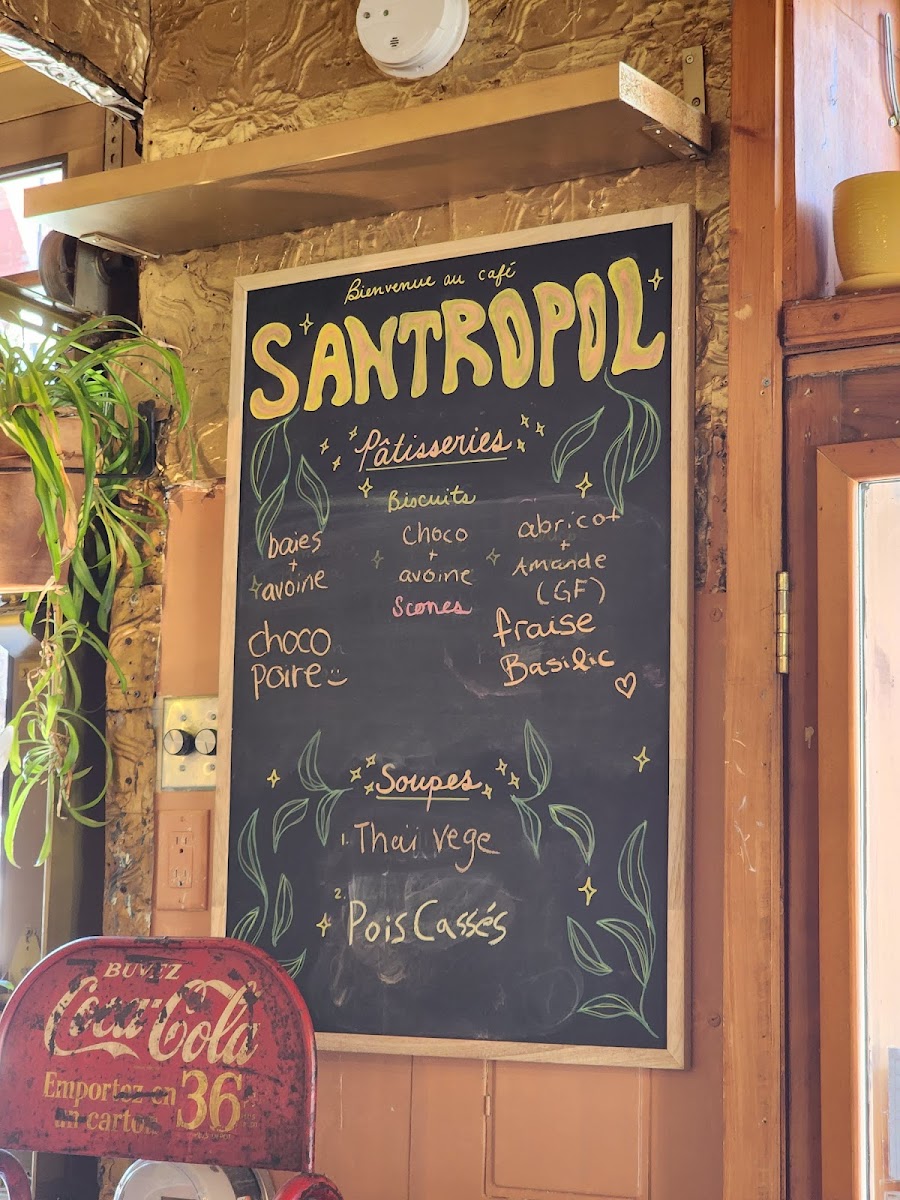 Bienvenue au café
SANTROPOL
Pâtisseries
Biscuits
baies
+
avoine
choco
+
avoine
abricot
+
Amande
(GF)
Scones
choco
poire
fraise
Basilic
Soupes
1. Thaï vege
2. Pois Cassés
BUVEZ
Coca-Cola
Emportez en
un carton
36